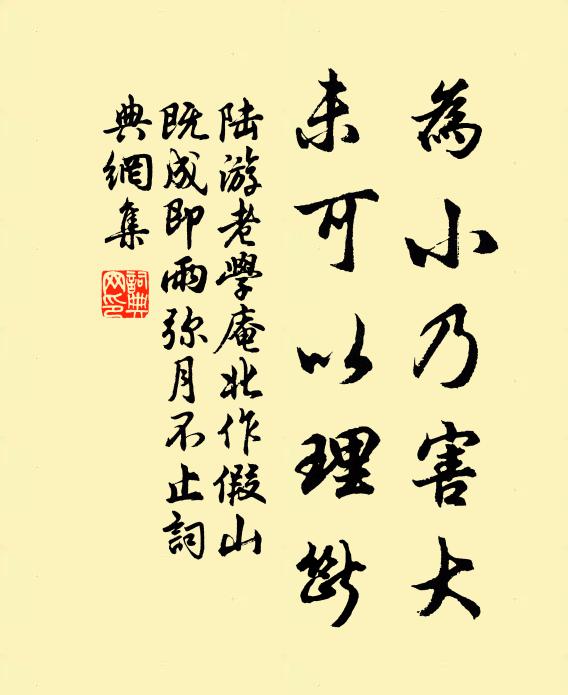 為小乃害大
未可以理斷
陆游老學庵北作假山
既成即雨弥月不止詞
典網集
詞典
网印